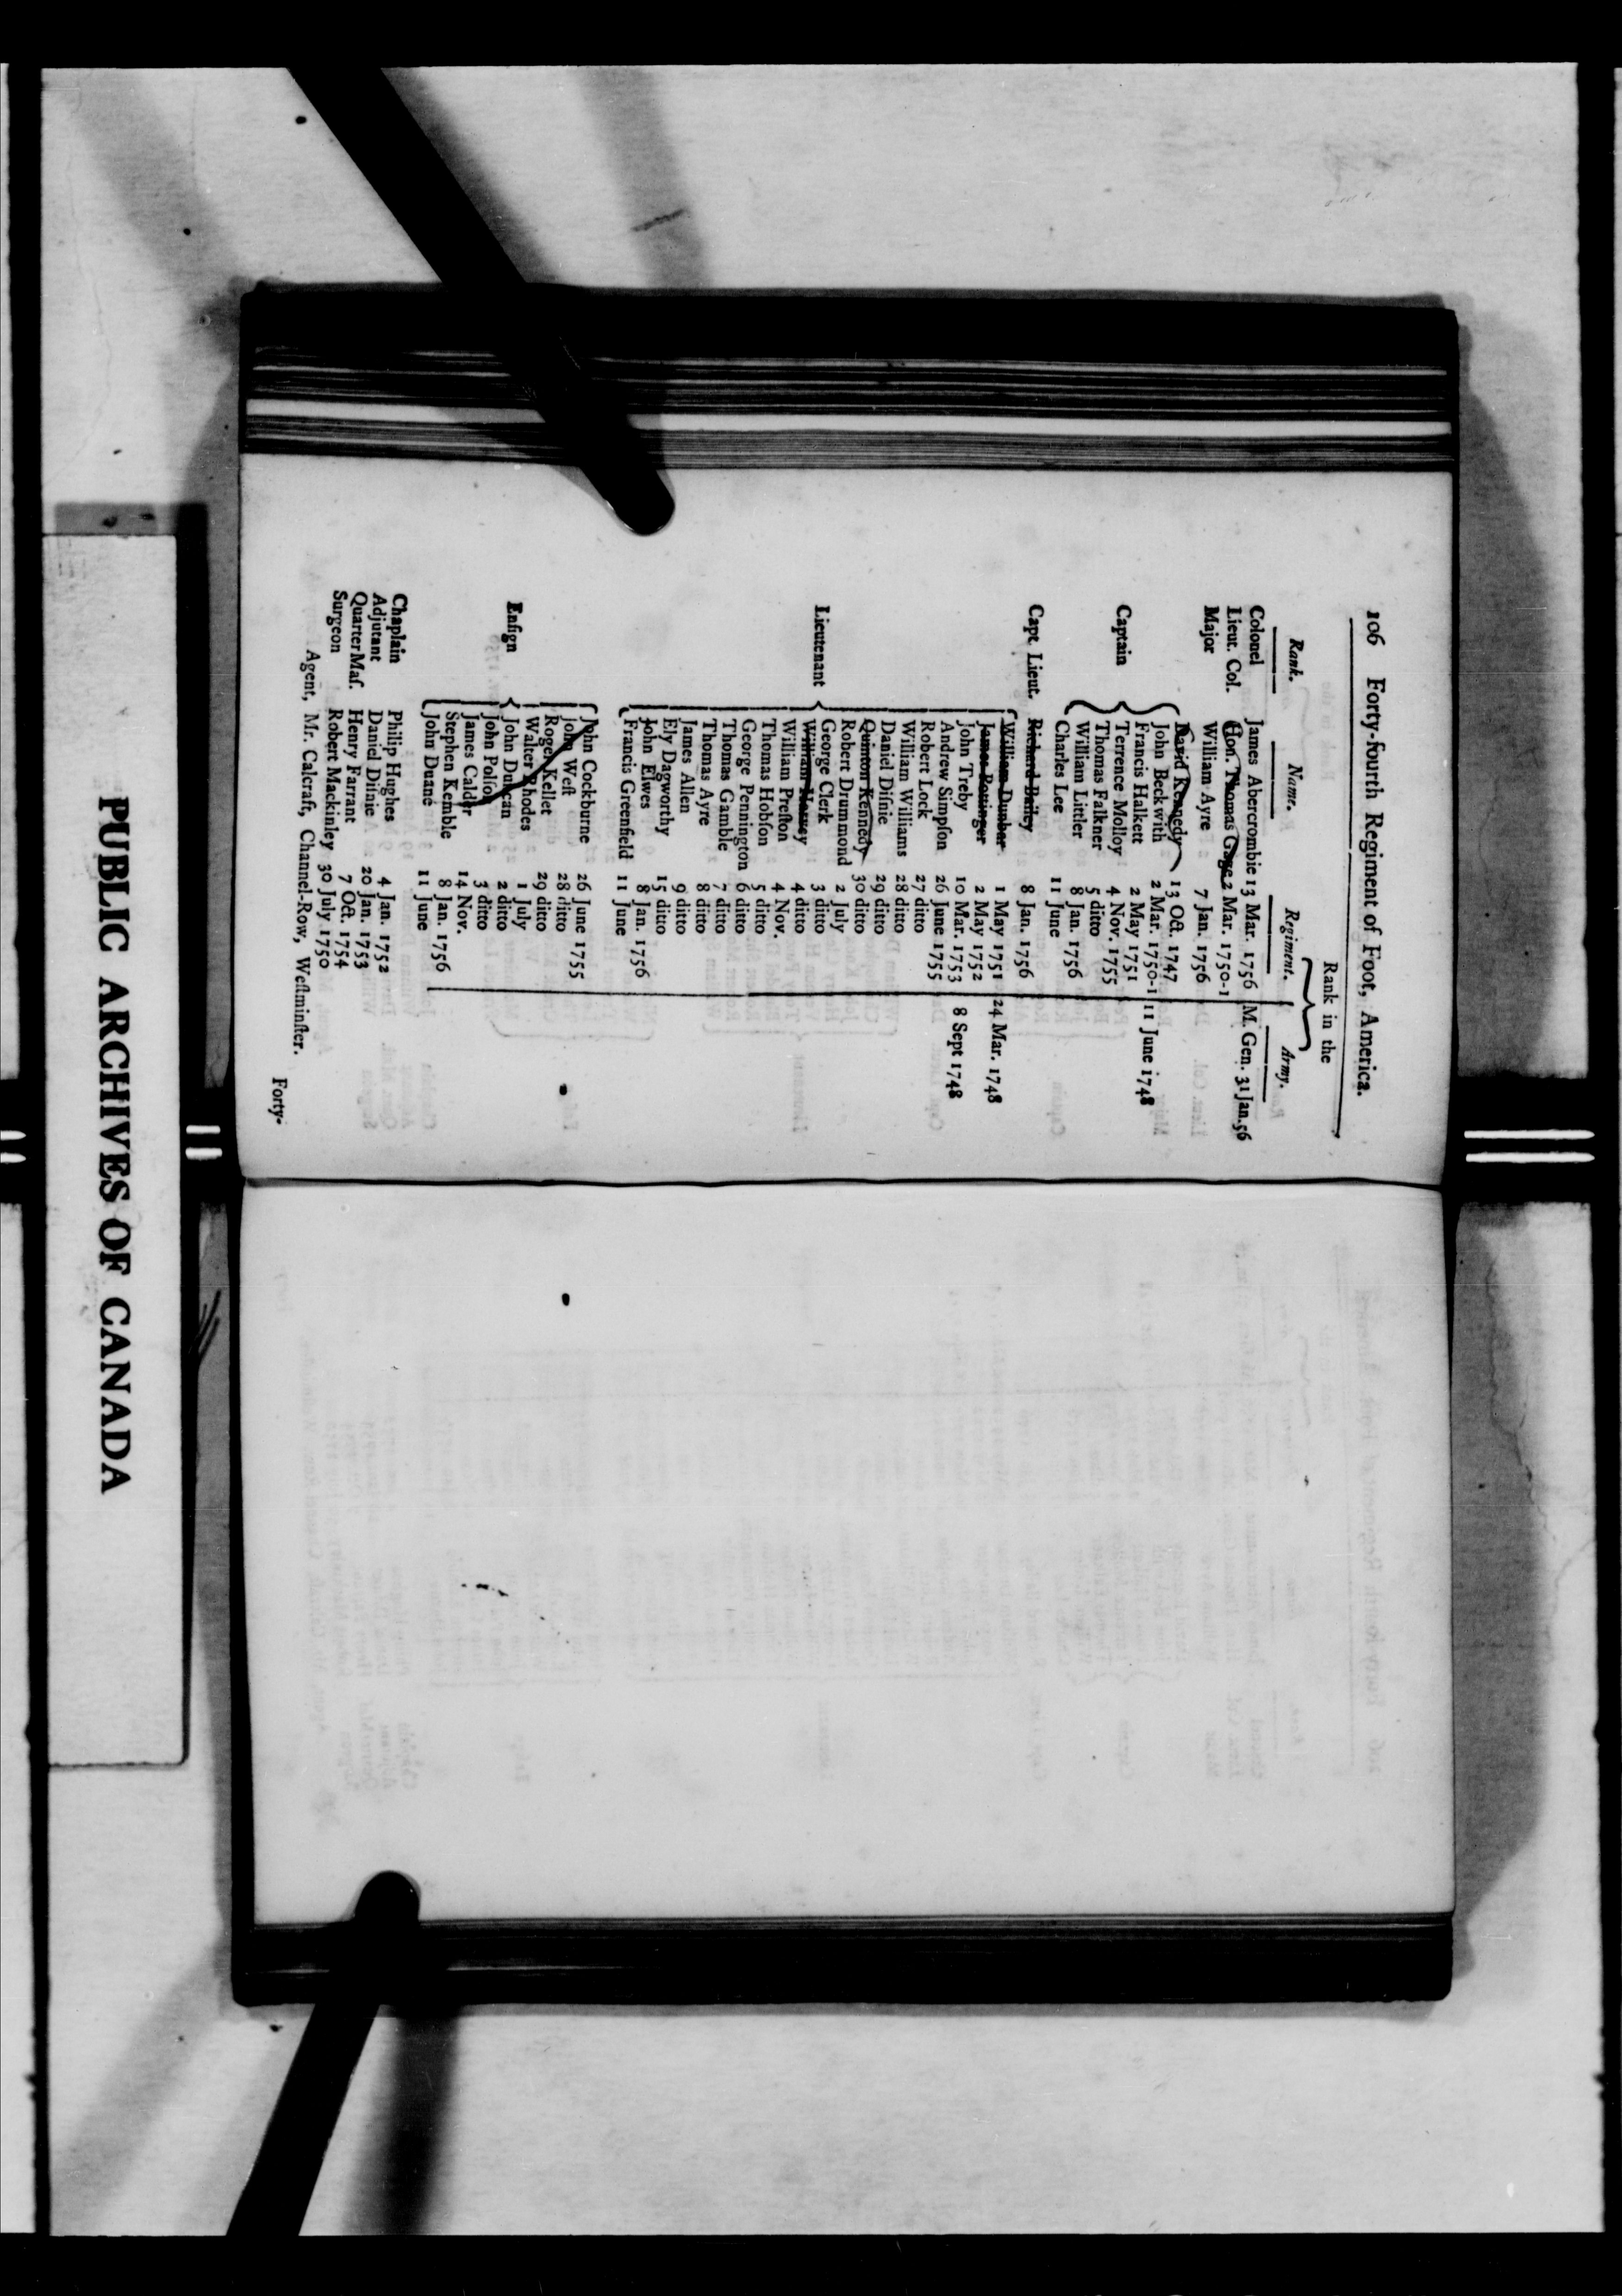 106 Forty-fourth Regiment of Foot, America.
Rank in the
Rank. Name. Regiment. Army.
Colonel James Abercrombie 13 Mar. 1756 M. Gen. 31 Jan. 56
Lieut. Col. Hon. Thomas Gage 2 Mar. 1750-1
Major William Ayre 7 Jan. 1756
David Kennedy 13 Oct. 1747
John Beckwith 2 Mar. 1750-1 11 June 1748
Francis Halkett 2 May 1751
Captain Terrence Molloy 4 Nov. 1755
Thomas Falkner 5 ditto
William Littler 8 Jan. 1756
Charles Lee 11 June
Capt. Lieut. Richard Bailey 8 Jan. 1756
William Dunbar 1 May 1751 24 Mar. 1748
James Pottinger 2 May 1752
John Treby 10 Mar. 1753 8 Sept 1748
Andrew Simpſon 26 June 1755
Robert Lock 27 ditto
William Williams 28 ditto
Daniel Diſnie 29 ditto
Quinton Kennedy 30 ditto
Robert Drummond 2 July
Lieutenant George Clerk 3 ditto
William Harvey 4 ditto
William Preſton 4 Nov.
Thomas Hobſon 5 ditto
George Pennington 6 ditto
Thomas Gamble 7 ditto
Thomas Ayre 8 ditto
James Allen 9 ditto
Ely Dagworthy 15 ditto
John Elwes 8 Jan. 1756
Francis Greenfield 11 June
John Cockburne 26 June 1755
John Weſt 28 ditto
Roger Kellet 29 ditto
Walter Rhodes 1 July
Enſign John Duncan 2 ditto
John Polſon 3 ditto
James Calder 14 Nov.
Stephen Kemble 8 Jan. 1756
John Duane 11 June
Chaplain Philip Hughes 4 Jan. 1752
Adjutant Daniel Diſnie 20 Jan. 1753
Quarter Maſ. Henry Farrant 7 Oct. 1754
Surgeon Robert Mackinley 30 July 1750
Agent, Mr. Calcraft, Channel-Row, Weſtminſter.
Forty-
PUBLIC ARCHIVES OF CANADA